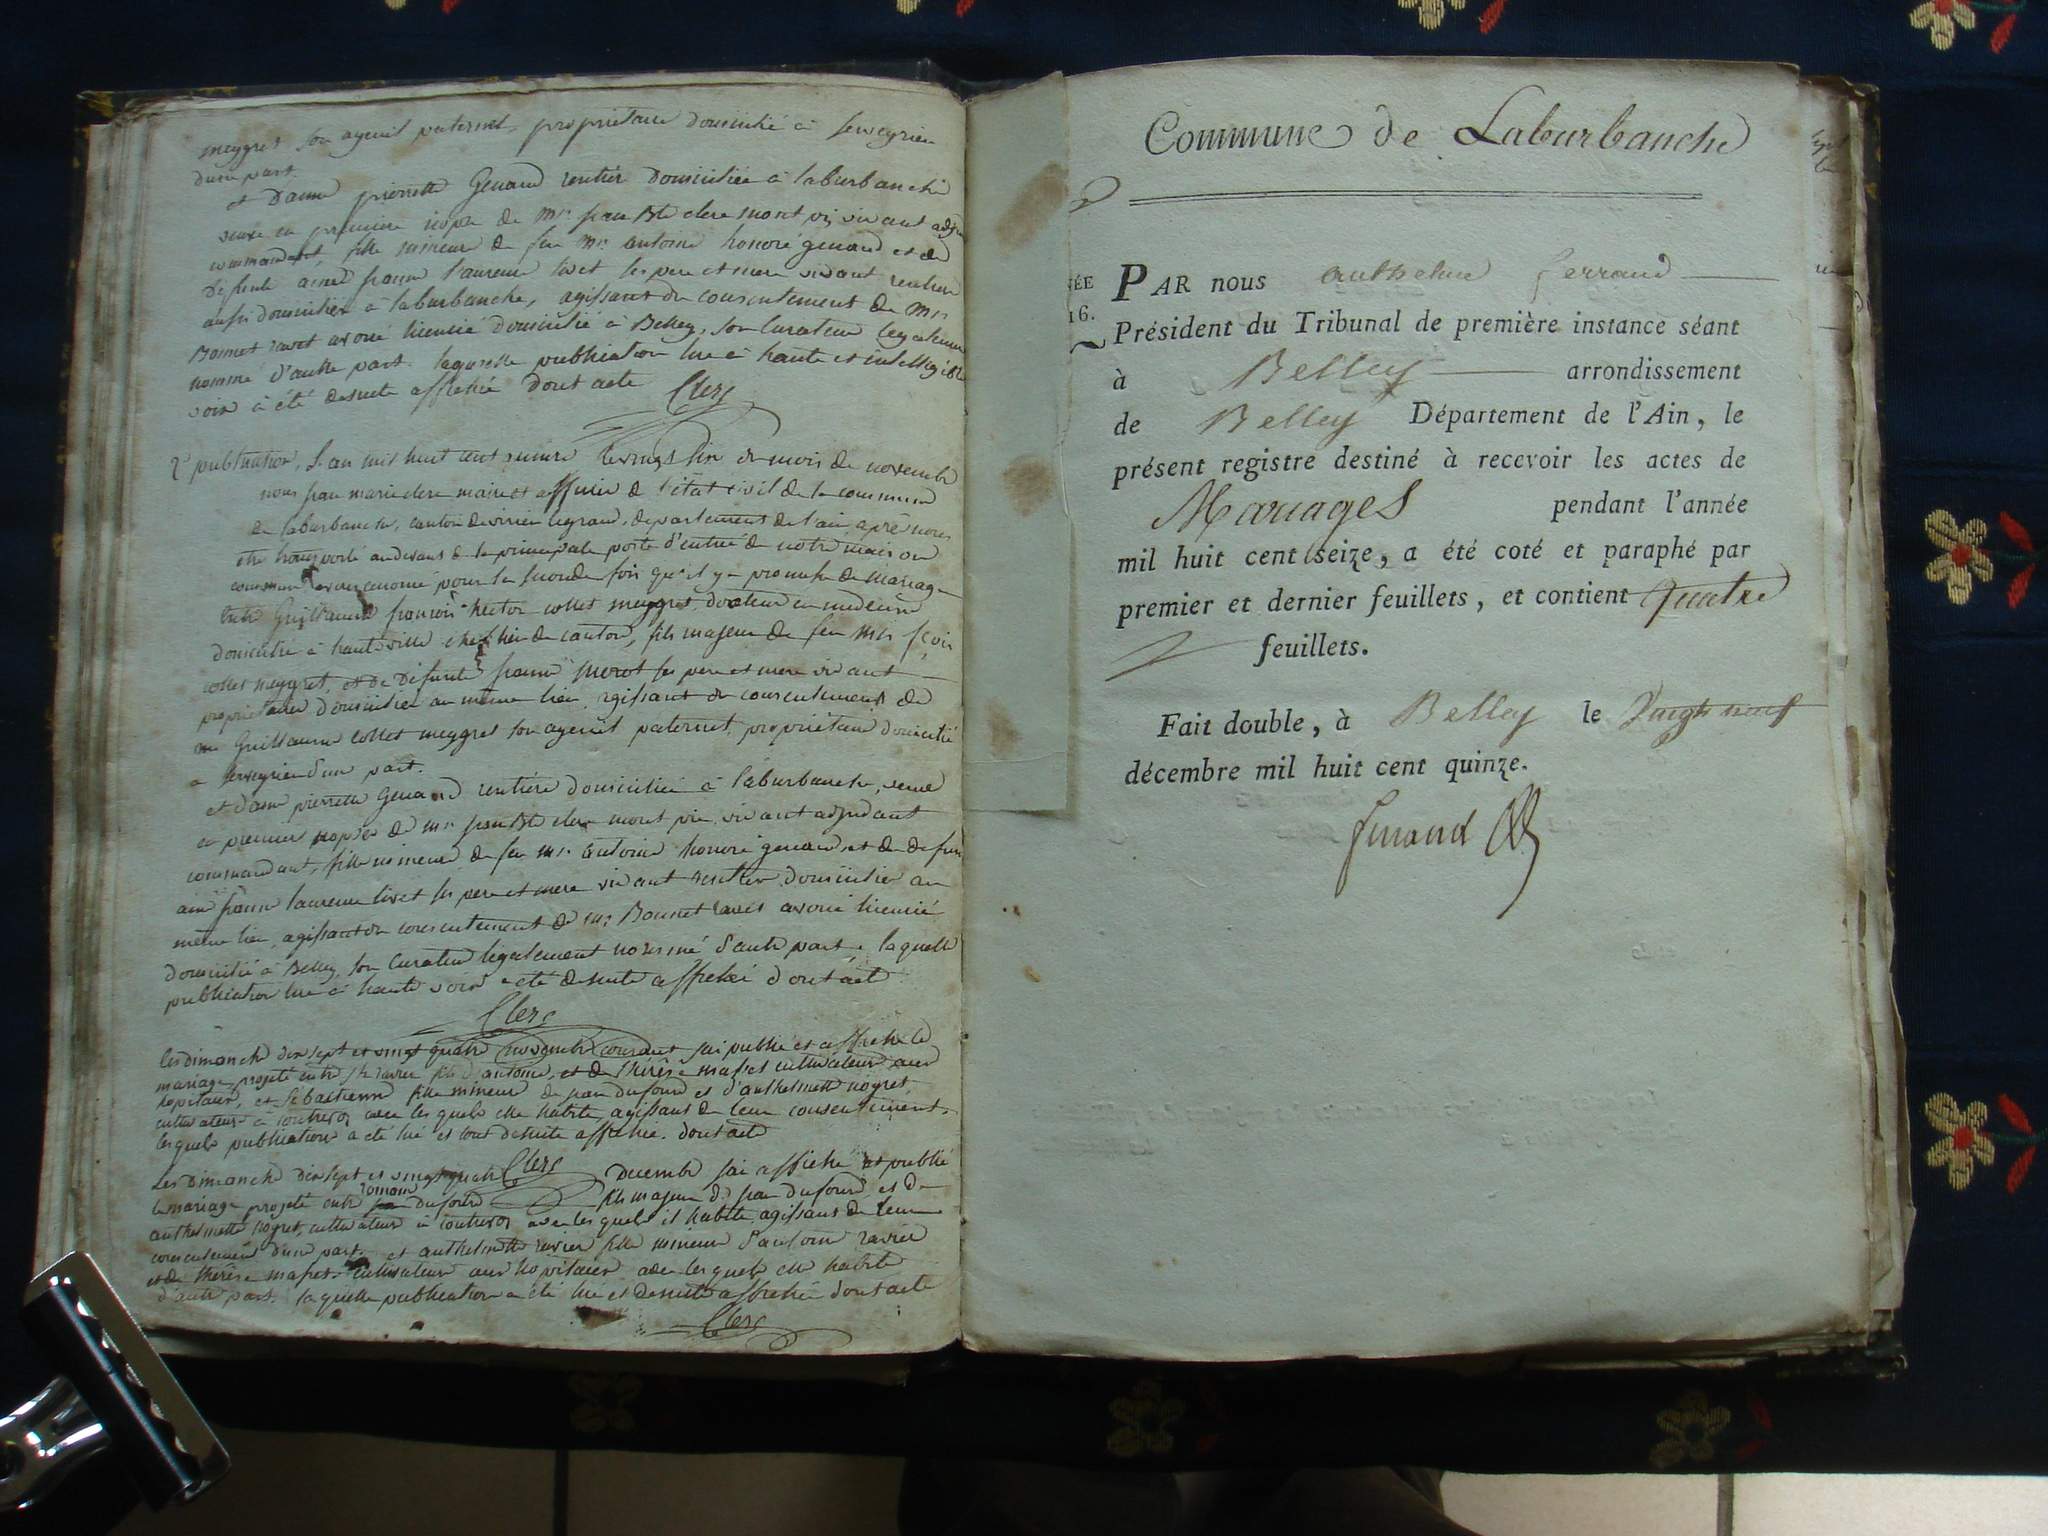 meygret son ayeuil paternel, proprietaire domicilié à serveyrieu
dune part.
et dame pierrette Genand rentier domiciliée à laburbanche
veuve en première nopce de mr. jean Bte clerc mont vivant
commandant, fille mineure de feu mr. antoine honoré genand et de
défunte aimé laurence livet les pere et mere vivant rentiers
aussi domicilier à laburbanche, agissant du consentement de mr.
Bonnet avoué licencié domicilié à Belley, son curateur legalement
nommé d'autre part. laquelle publication lue à haute et intelligible
voix à été desuite affichée dont acte
Clerc
2e publication, L'an mil huit cent le vingt du mois de novembre
nous jean marie clerc maire et officier de l'état civil de la commune
de laburbanche, canton de virieu legrand, departement de l'ain après nous
etre transporté au devant de la principale porte d'entrée de notre maison
commune avons annoncé pour la seconde fois qu'il y a promesse de mariage
entre Guillaume françois hector collet meygret, docteur en medecine
domicilié à hauteville chef lieu de canton, fils majeur de feu mr. fçois
collet meygret, et de défunte les pere et mere vivant
proprietaires domicilier au même lieu, agissant du consentement de
mr Guillaume collet meygret son ayeuil paternel, proprietaire domicilié
a serveyrieu d'une part.
et dame pierrette Genand rentière domiciliée à laburbanche, veuve
en premier nopces de mr. jean Bte clerc mont vivant adjudant
commandant, fille mineure de feu mr. antoine honoré genand, et de défunte
laurence livet les pere et mere vivant rentier domicilier au
même lieu, agissant du consentement de mr Bonnet avoué licencié
domicilié à Belley, son curateur légalement nommé d'autre part. laquelle
publication lue à haute voix a été desuite affichée dont acte
Clerc
les dimanche dix sept et vingt quatre novembre courant j'ai publié et affiché le
mariage projeté entre ravier fils d'antoine, et de thérèse masset cultivateur aux
hopitaux, et sébastienne fille mineure de jean dufour et d'anthelmette noyret
cultivateur à contrevoz avec lesquels elle habite agissant de leur consentement,
lesquels publication a été lue et tout desuite affichée. dont acte
Clerc
Les dimanche dix sept et vingt quatre decembre j'ai affiché et publié
le mariage projeté entre romain dufour fils majeur de jean dufour et de
anthelmette noyret, cultivateur à contrevoz avec lesquels il habite agissant de leur
consentement d'une part. et anthelmette ravier fille mineure d'antoine ravier
et de thérèse masset cultivateur aux hopitaux avec lesquels elle habite
d'autre part. laquelle publication a été lue et desuite affichée dont acte
Clerc
Commune de Laburbanche
NÉE
16.
PAR nous anthelme ferrand
Président du Tribunal de première instance séant
à Belley arrondissement
de Belley Département de l'Ain, le
présent registre destiné à recevoir les actes de
Mariages pendant l'année
mil huit cent seize, a été coté et paraphé par
premier et dernier feuillets, et contient quatre
feuillets.
Fait double, à Belley le Vingt neuf
décembre mil huit cent quinze.
ferrand